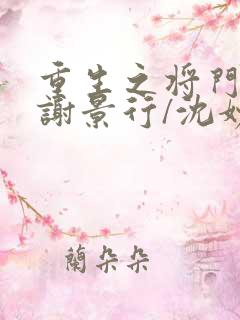 重生之将門
謝景行/沈妙
蘭朵朵